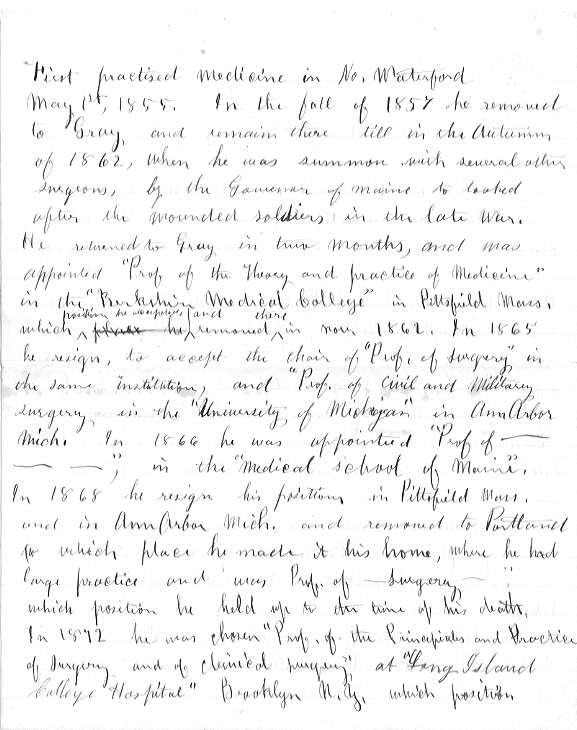 First practised Medicine in No. Waterford
May 1st, 1855. In the fall of 1857 he removed
to Gray, and remain there till in the Autumn
of 1862, when he was summon with several other
surgeons, by the Governor of Maine to looked
after the wounded soldiers, in the late War.
He returned to Gray in two months, and was
appointed "Prof of the Theory and practice of Medicine"
in the "Berkshire Medical College" in Pittsfield Mass.
position he accepted and there
which place he removed in nov 1862. In 1865
he resign, to accept the chair of "Prof. of surgery" in
the same institution, and "Prof. of Civil and Military
surgery in the "University of Michigan" in Ann Arbor
Mich. In 1866 he was appointed "Prof of —
— —", in the "Medical school of Maine".
In 1868 he resign his position, in Pittsfield Mass.
and in Ann Arbor Mich. and removed to Portland
which place he made it his home, where he had
large practice and was Prof. of — surgery — "
which position he held up to the time of his death.
In 1872 he was chosen "Prof. of the Principles and Practice
of surgery and of clinical surgery", at "Long Island
College Hospital" Brooklyn N.Y. which position